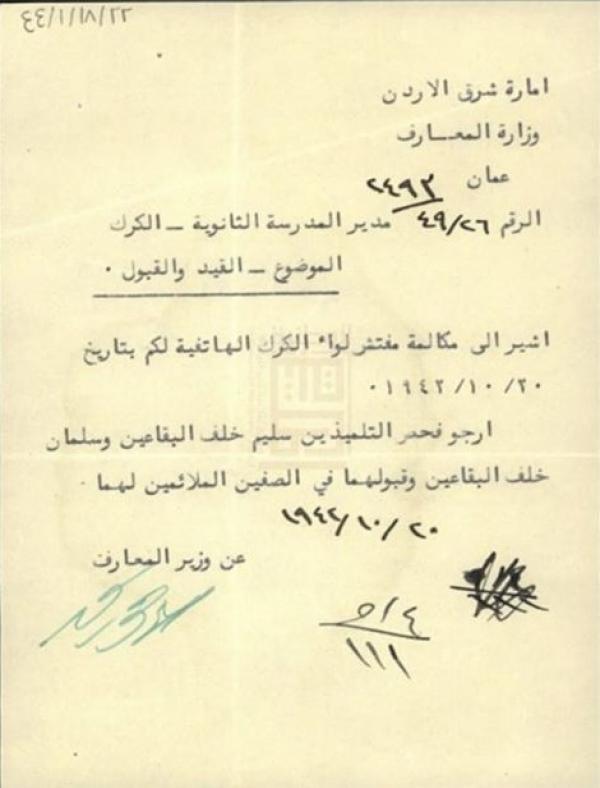 ٢٢/١٨/١/٤٤
امارة شرق الاردن
وزارة المعارف
عمان ٢٤٩٣
الرقم ٤٩/٢٦ مدير المدرسة الثانوية ــ الكرك
الموضوع ــ القيد والقبول ٠
اشير الى مكالمة مفتش لواء الكرك الهاتفية لكم بتاريخ
٢٠/١٠/١٩٤٢ ٠
ارجو فحص التلميذين سليم خلف البقاعين وسلمان
خلف البقاعين وقبولهما في الصفين الملائمين لهما ٠
٢٠/١٠/١٩٤٢
عن وزير المعارف
٥/٤
١١١